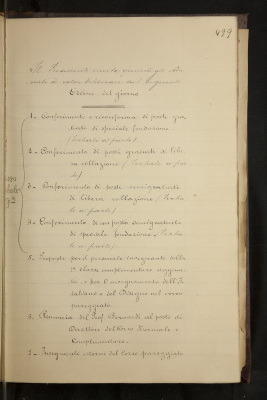 499
Il Presidente invita, quindi gli Adu-
nati a voler deliberare sul seguente
Ordine del giorno
1 - Conferimento e riconferma di posti gra-
tuiti di speciale fondazione.
(Verbale a parte)
2 - Conferimento di posti gratuiti di libe-
ra collazione (Verbale a par
te)
3 - Conferimento di posti semigratuiti
di libera collazione (Verba
le a parte)
4 - Conferimento di un posto semigratuito
di speciale fondazione (Verba
le a parte)
5 - Proposte per il personale insegnante della
1ª classe complementare aggiun-
ta, e per l'insegnamento dell'I-
taliano e del Disegno nel corso
pareggiato
6 - Rinuncia del Prof. Bernardi al posto di
Direttore del Corso Normale e
Complementare.
7 - Insegnante interna del Corso pareggiato